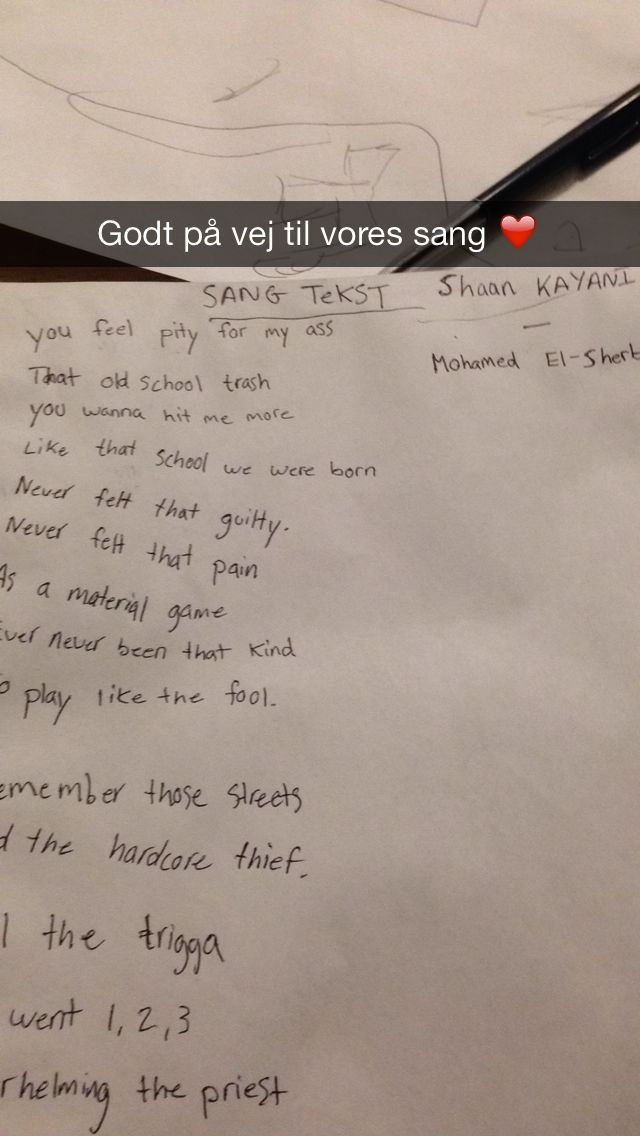 Godt på vej til vores sang ❤️
SANG TEKST
Shaan KAYANI
—
Mohamed El-Sherb
you feel pity for my ass
That old school trash
you wanna hit me more
Like that school we were born
Never felt that guilty.
Never felt that pain
As a material game
Ever never been that kind
o play like the fool.
emember those streets
d the hardcore thief.
l the trigga
went 1, 2, 3
rhelming the priest